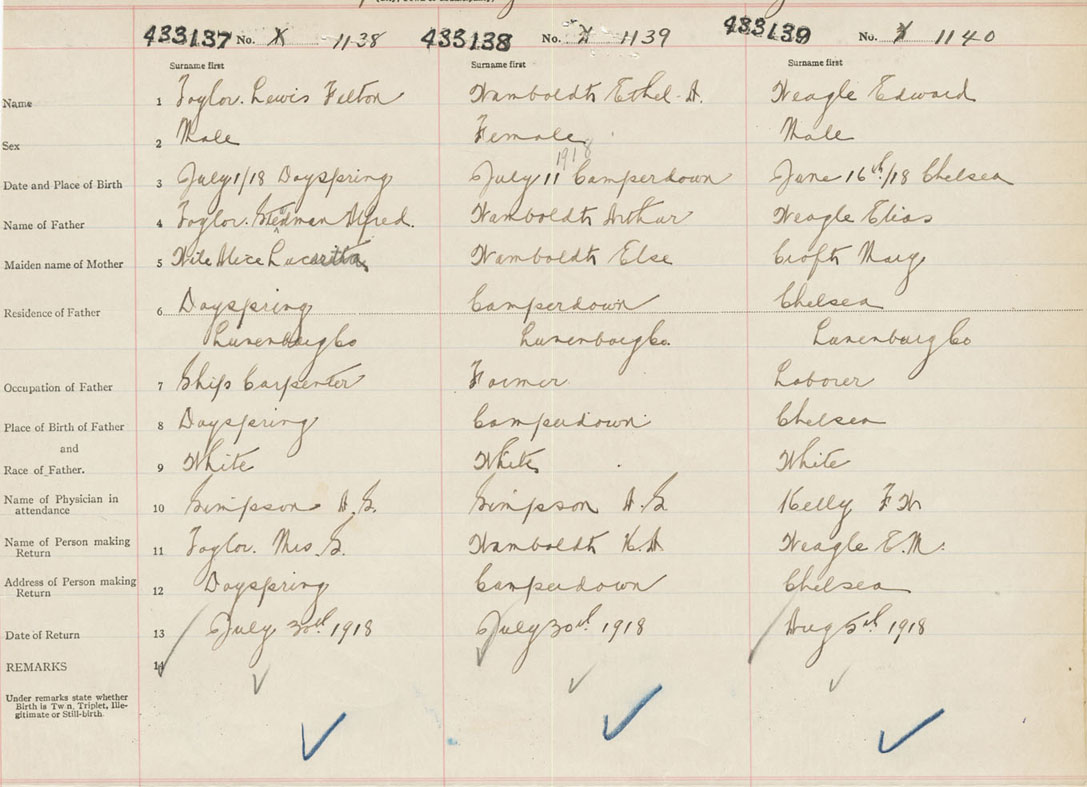 433137 No. X 1138 433138 No. X 1139 433139 No. X 1140
Surname first Surname first Surname first
Name 1 Taylor. Lewis Felton Wamboldt Ethel A. Weagle Edward
Sex 2 Male Female Male
1918
Date and Place of Birth 3 July 1/18 Dayspring July 11 Camperdown June 16th/18 Chelsea
Name of Father 4 Taylor. Stedman Alfred. Wamboldt Arthur Weagle Elias
Maiden name of Mother 5 Wile Alice Wamboldt Else Croft Mary
Residence of Father 6 Dayspring Camperdown Chelsea
Lunenburg Co Lunenburg Co. Lunenburg Co
Occupation of Father 7 Ship Carpenter Farmer Laborer
Place of Birth of Father 8 Dayspring Camperdown Chelsea
and
Race of Father. 9 White White White
Name of Physician in
attendance 10 Simpson A.G. Simpson A.G Kelly F W
Name of Person making
Return 11 Taylor. Mrs. S. Wamboldt H.A Weagle E.M.
Address of Person making
Return 12 Dayspring Camperdown Chelsea
Date of Return 13 July 30th 1918 July 30th 1918 Aug 5th 1918
REMARKS 14
Under remarks state whether
Birth is Twin, Triplet, Ille-
gitimate or Still-birth.